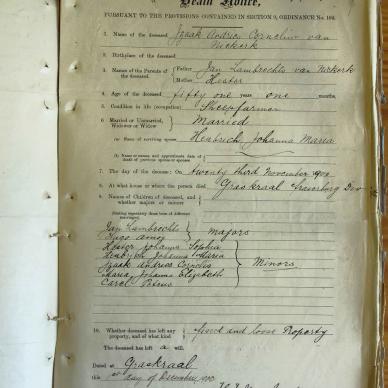 Death Notice,
PURSUANT TO THE PROVISIONS CONTAINED IN SECTION 9, ORDINANCE No. 104.
1. Name of the deceased Izaak Andries Cornelius van
Niekerk
2. Birthplace of the deceased
3. Names of the Parents of the deceased. Father Jan Lambrechts van Niekerk
Mother Hester
4. Age of the deceased fifty one years one months.
5. Condition in life (occupation) Sheepfarmer
6. Married or Unmarried, Widower or Widow Married
(a) Name of surviving spouse Hendrick Johanna Maria
(b) Name or names, and approximate date of death of previous spouse or spouses
7. The day of the decease: On twenty third November
8. At what house or where the person died Graskraal
9. Names of Children of deceased, and whether majors or minors
Jan Lambrechts
Hugo Majors
Hester Johanna Sophia
Johanna Maria
Izaak Andries Cornelis Minors
Maria Johanna Elizabeth
Carel Petrus
10. Whether deceased has left any property, and of what kind fixed and loose Property
The deceased has left a will.
Dated at Graskraal
this day of December